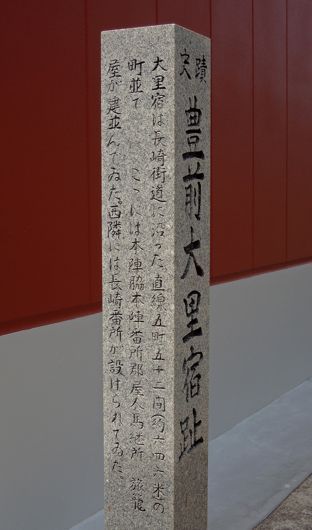 史蹟
豊前大里宿趾
大里宿は長崎街道に沿った直線五町五十二間(約六四六米の
町並で ここには本陣脇本陣番所郡屋人馬継所 旅籠
屋が建並んでゐた。西隣には長崎番所が設けられてゐた。